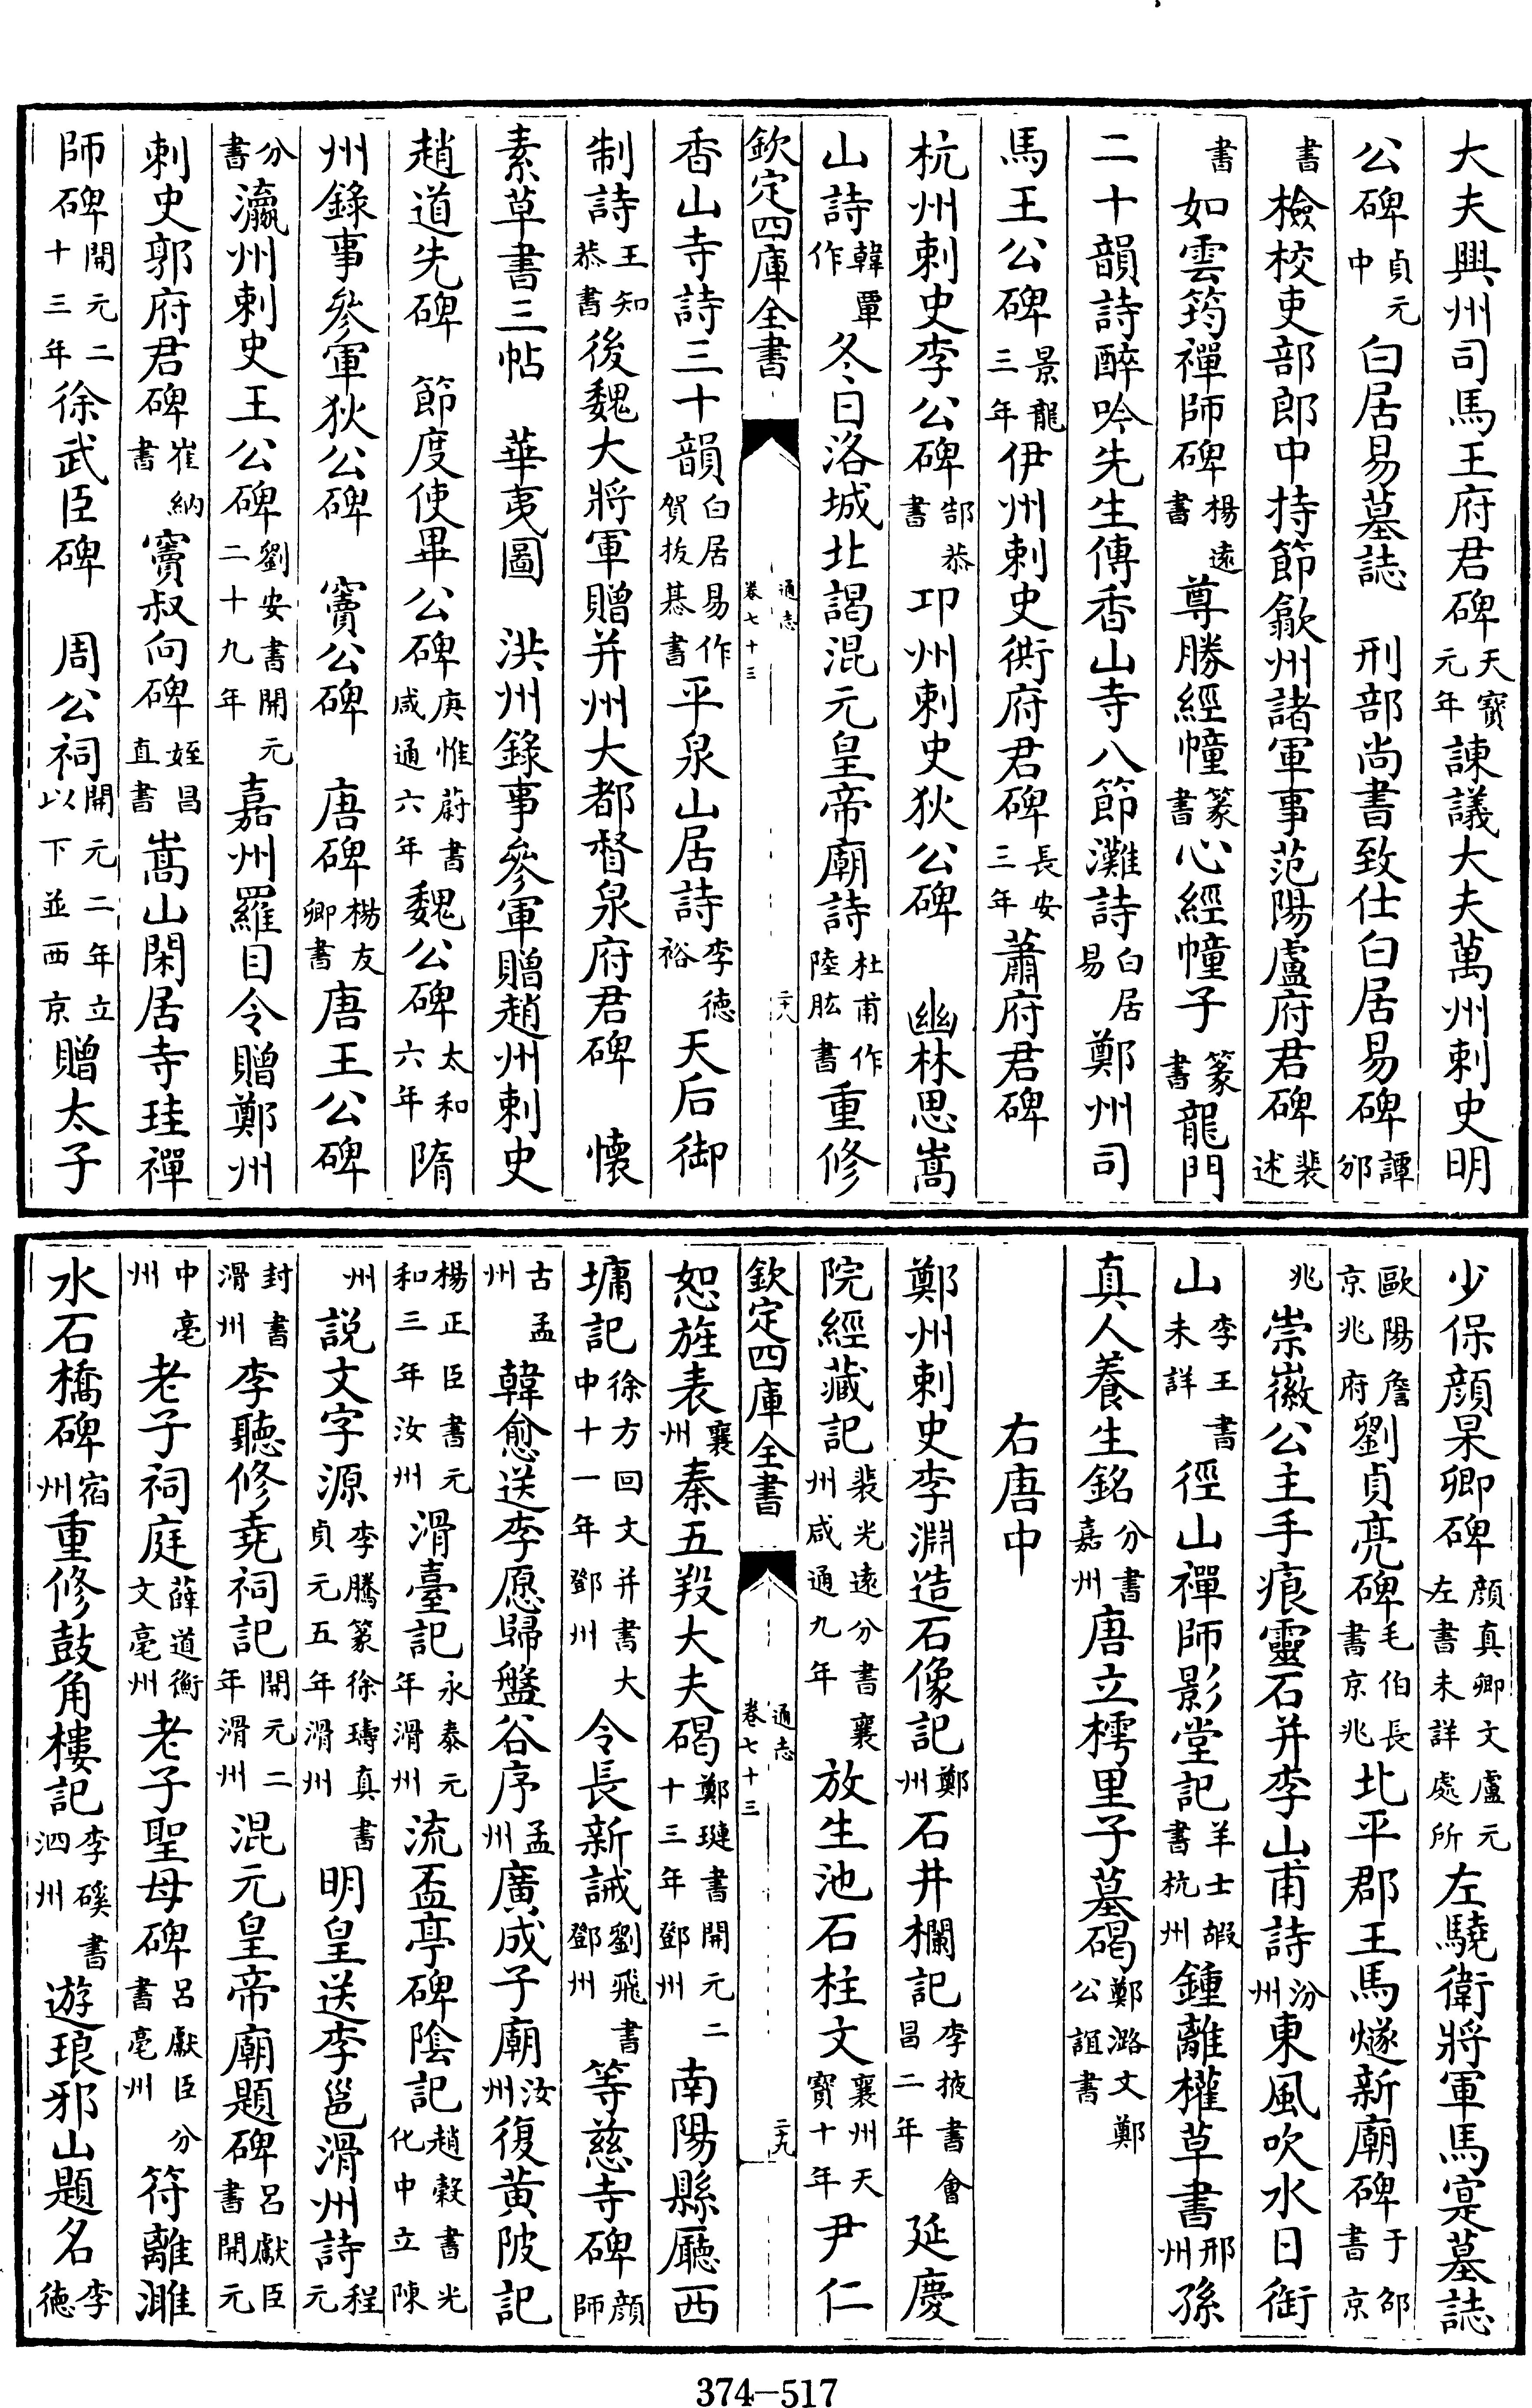 大夫興州司馬王府君碑天寶元年諫議大夫萬州刺史明
公碑貞元中白居易墓誌　刑部尚書致仕白居易碑譚邠
書檢校吏部郎中持節歙州諸軍事范陽盧府君碑裴述
書如雲筠禪師碑楊遠書尊勝經幢篆書心經幢子篆書龍門
二十韻詩醉吟先生傳香山寺八節灘詩白居易鄭州司
馬王公碑景龍三年伊州刺史衙府君碑長安三年蕭府君碑
杭州刺史李公碑郜恭書邛州刺史狄公碑　幽林思嵩
山詩韓覃作冬日洛城北謁混元皇帝廟詩杜甫作陸肱書重修
欽定四庫全書　通志卷七十三　二十八
香山寺詩三十韻白居易作賀拔惎書平泉山居詩李德裕天后御
制詩王知恭書後魏大將軍贈并州大都督泉府君碑　懷
素草書三帖　華夷圖　洪州錄事參軍贈趙州刺史
趙道先碑　節度使畢公碑庾惟蔚書咸通六年魏公碑太和六年隋
州錄事參軍狄公碑　竇公碑　唐碑楊友卿書唐王公碑
分書瀛州刺史王公碑劉安書開元二十九年嘉州羅目令贈鄭州
刺史郭府君碑崔納書竇叔向碑姪昌直書嵩山閑居寺珪禪
師碑開元二十三年徐武臣碑　周公祠開元二年立以下並西京贈太子
少保顔杲卿碑顔真卿文盧元左書未詳處所左驍衛將軍馬寔墓誌
歐陽詹京兆府劉貞亮碑毛伯長書京兆北平郡王馬燧新廟碑于邵書京
兆崇徽公主手痕靈石并李山甫詩汾州東風吹水日銜
山李王書未詳徑山禪師影堂記羊士嘏書杭州鍾離權草書邢州孫
真人養生銘分書嘉州唐立樗里子墓碣鄭潞文鄭公誼書
右唐中
鄭州刺史李淵造石像記鄭州石井欄記李掖書會昌二年延慶
院經藏記裴光遠分書襄州咸通九年放生池石柱文襄州天寶十年尹仁
欽定四庫全書　通志卷七十三　二十九
恕旌表襄州秦五羖大夫碣鄭璉書開元二十三年鄧州南陽縣廳西
墉記徐方回文并書大中十一年鄧州令長新誡劉飛書鄧州等慈寺碑顔師
古孟州韓愈送李愿歸盤谷序孟州廣成子廟汝州復黄陂記
楊正臣書元和三年汝州滑臺記永泰元年滑州流盃亭碑陰記趙穀書光化中立陳
州說文字源李騰篆徐璹真書貞元五年滑州明皇送李邕滑州詩程元
封書滑州李聽修堯祠記開元二年滑州混元皇帝廟題碑呂獻臣書開元
中亳州老子祠庭薛道衡文亳州老子聖母碑呂獻臣分書亳州符離濉
水石橋碑宿州重修鼓角樓記李磎書泗州遊琅邪山題名李德
374-517